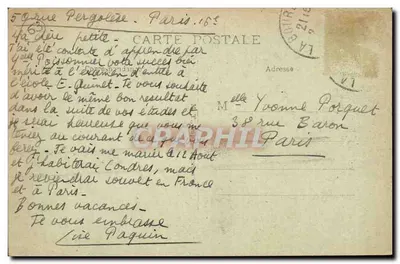 50 rue Pergolèse. Paris. 16e
Ma chère petite.
J'ai été contente d'apprendre par
CARTE POSTALE
Poissonnier votre succès bien
mérité à l'examen d'entrée à
l'école E. Quinet. Je vous souhaite
d'avoir le même bon resultat
dans la suite de vos études et
je serai heureuse que vous me
tenez au courant
Je vais me marier le 12 Aout
et j'habiterai Londres, mais
je reviendrai souvent en France
et à Paris.
Bonnes vacances.
Je vous embrasse
Lise Paquin
Adresse
Melle Yvonne Porquet
38 rue Baron
Paris
CPRHPHIL